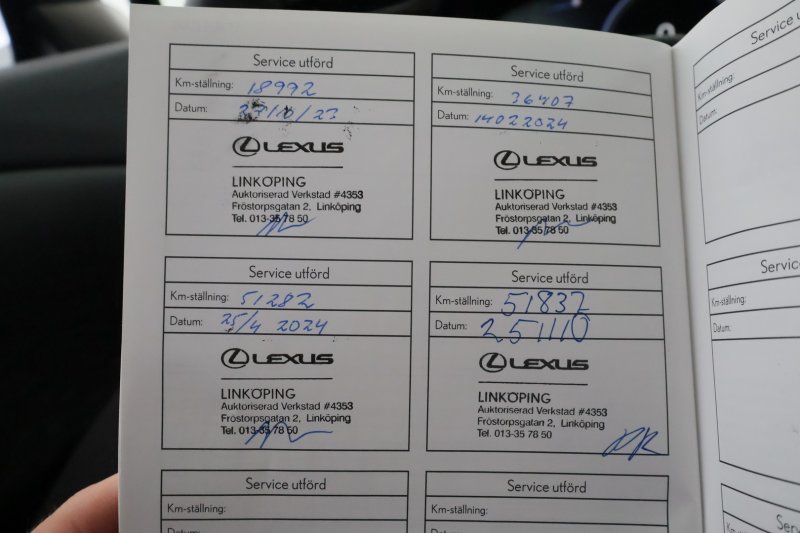 Service utförd
Km-ställning: 18992
Datum: 27/10/23
LEXUS
LINKÖPING
Auktoriserad Verkstad #4353
Fröstorpsgatan 2, Linköping
Tel. 013-35 78 50
Service utförd
Km-ställning: 36407
Datum: 14022024
LEXUS
LINKÖPING
Auktoriserad Verkstad #4353
Fröstorpsgatan 2, Linköping
Tel. 013-35 78 50
Service utförd
Km-ställning: 51282
Datum: 25/4 2024
LEXUS
LINKÖPING
Auktoriserad Verkstad #4353
Fröstorpsgatan 2, Linköping
Tel. 013-35 78 50
Service utförd
Km-ställning: 51832
Datum: 251110
LEXUS
LINKÖPING
Auktoriserad Verkstad #4353
Fröstorpsgatan 2, Linköping
Tel. 013-35 78 50
Service utförd
Km-ställning:
Datum:
Service utförd
Km-ställning:
Service u
Km-ställning:
Datum:
Servic
Km-ställning:
Datum:
Se